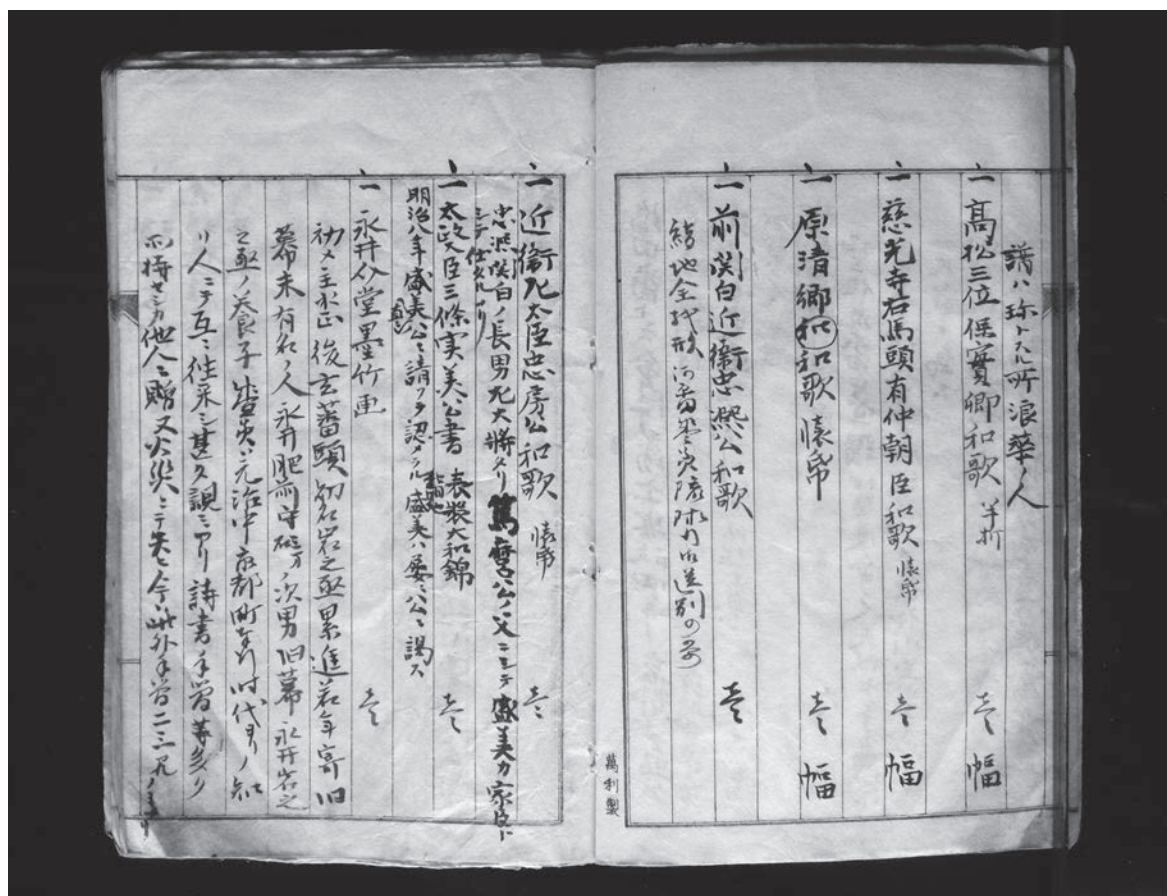 諱ハ珎トスル所浪華ノ人
一 高松三位保實卿和歌 半折 壱幅
一 慈光寺右馬頭有仲朝臣和歌 懐帋 壱幅
一 原清郷和歌 懐帋 壱幅
一 前関白近衞忠熈公和歌 壱
送別の
萬利製
一 近衞左大臣忠房公和歌 懐帋 壱
忠熈関白ノ長男左大將タリ篤麿公ノ父ニシテ盛美カ家臣ト
シテ仕タルナリ
一 太政大臣三條実美公書 表装大和錦 壱
明治八年盛美公ニ請フテ認メラル盛美ハ屡〻公ニ謁ス
一 永井介堂墨竹画 壱
初メ主水正後玄蕃頭 岩之丞累進若年寄旧
幕末有名ノ人永井肥前守 ノ次男旧幕永井岩之
丞ノ養子 元治中京都町奉行時代ヨリノ知
リ人ニテ互ニ往来シ甚タ親ミアリ詩書手簡等多ク
所持セシカ他人ニ贈又火災ニテ失ヒ今ハ此外手簡二三